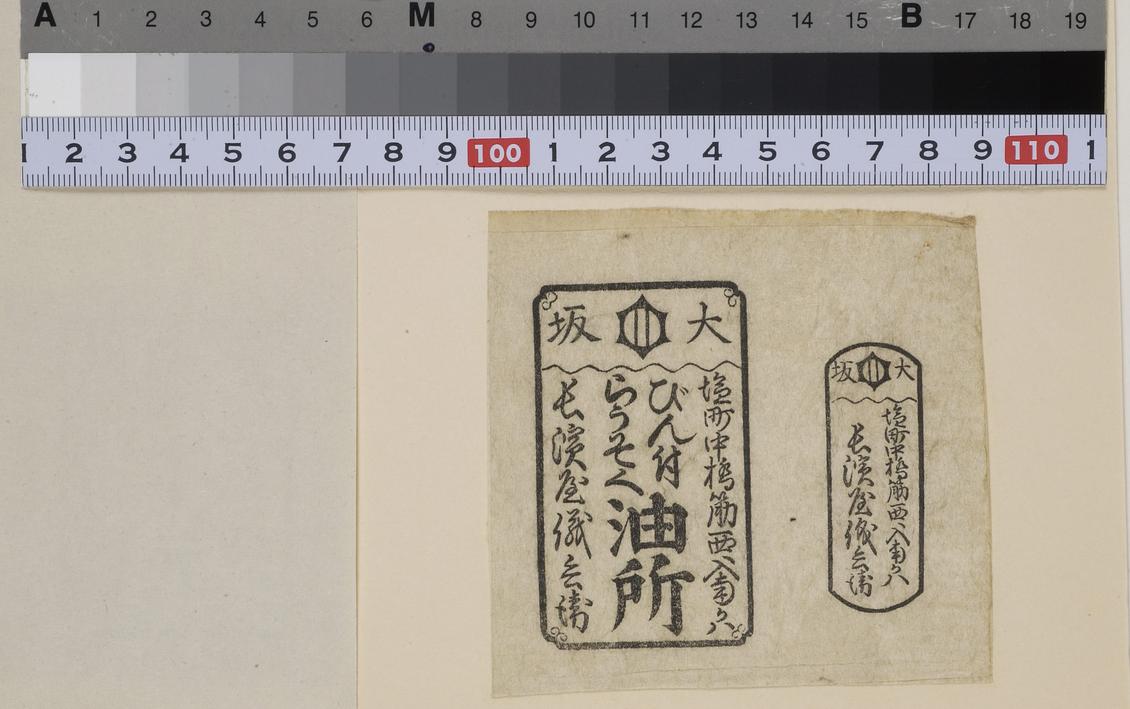 A 1 2 3 4 5 6 M 8 9 10 11 12 13 14 15 B 17 18 19
1 2 3 4 5 6 7 8 9 100 1 2 3 4 5 6 7 8 9 110 1
大坂
塩町中橋筋西へ入南かハ
びん付
らうそく
油所
長濱屋儀兵衛
大坂
塩町中橋筋西へ入南かハ
長濱屋儀兵衛